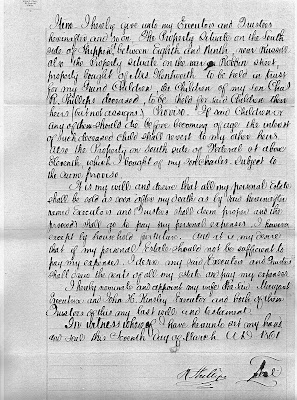 Item I hereby give unto my Executors and Trustees
hereinafter and to be. The Property Situate on the South
side of Pippin, between Eighth and Ninth, near Russell
also The Property Situate on the near Melvin street,
property bought of Mrs. to be held in trust
for my Grand Children, the Children of my son Chas
R. Phillips deceased, to be held for said Children their
heirs Proviso. If said Children or
any of them should die before becoming of age the interest
of such deceased child shall revert to my other heirs.
Also the Property on South side of at above
Eleventh, which I bought of subject to
the same provise.
It is my will and desire that all my personal Estate
shall be sold as soon after my death as by said hereinafter
named Executors and Trustees shall deem proper and the
proceeds shall go to pay my personal expenses. I however
except my household furniture. And it is my desire
that if my Personal Estate should not be sufficient to
pay my expenses. I desire my said Executors and Trustees
shall the rents of all my estate and pay my expenses
I hereby nominate and appoint my wife Margaret
Executrix and John H. Kinsley Executor and both of them
Trustees of this my last will and testament.
In witness whereof I have hereunto set my hand
and seal this Seventh day of March A.D. 1861
Phillips Seal